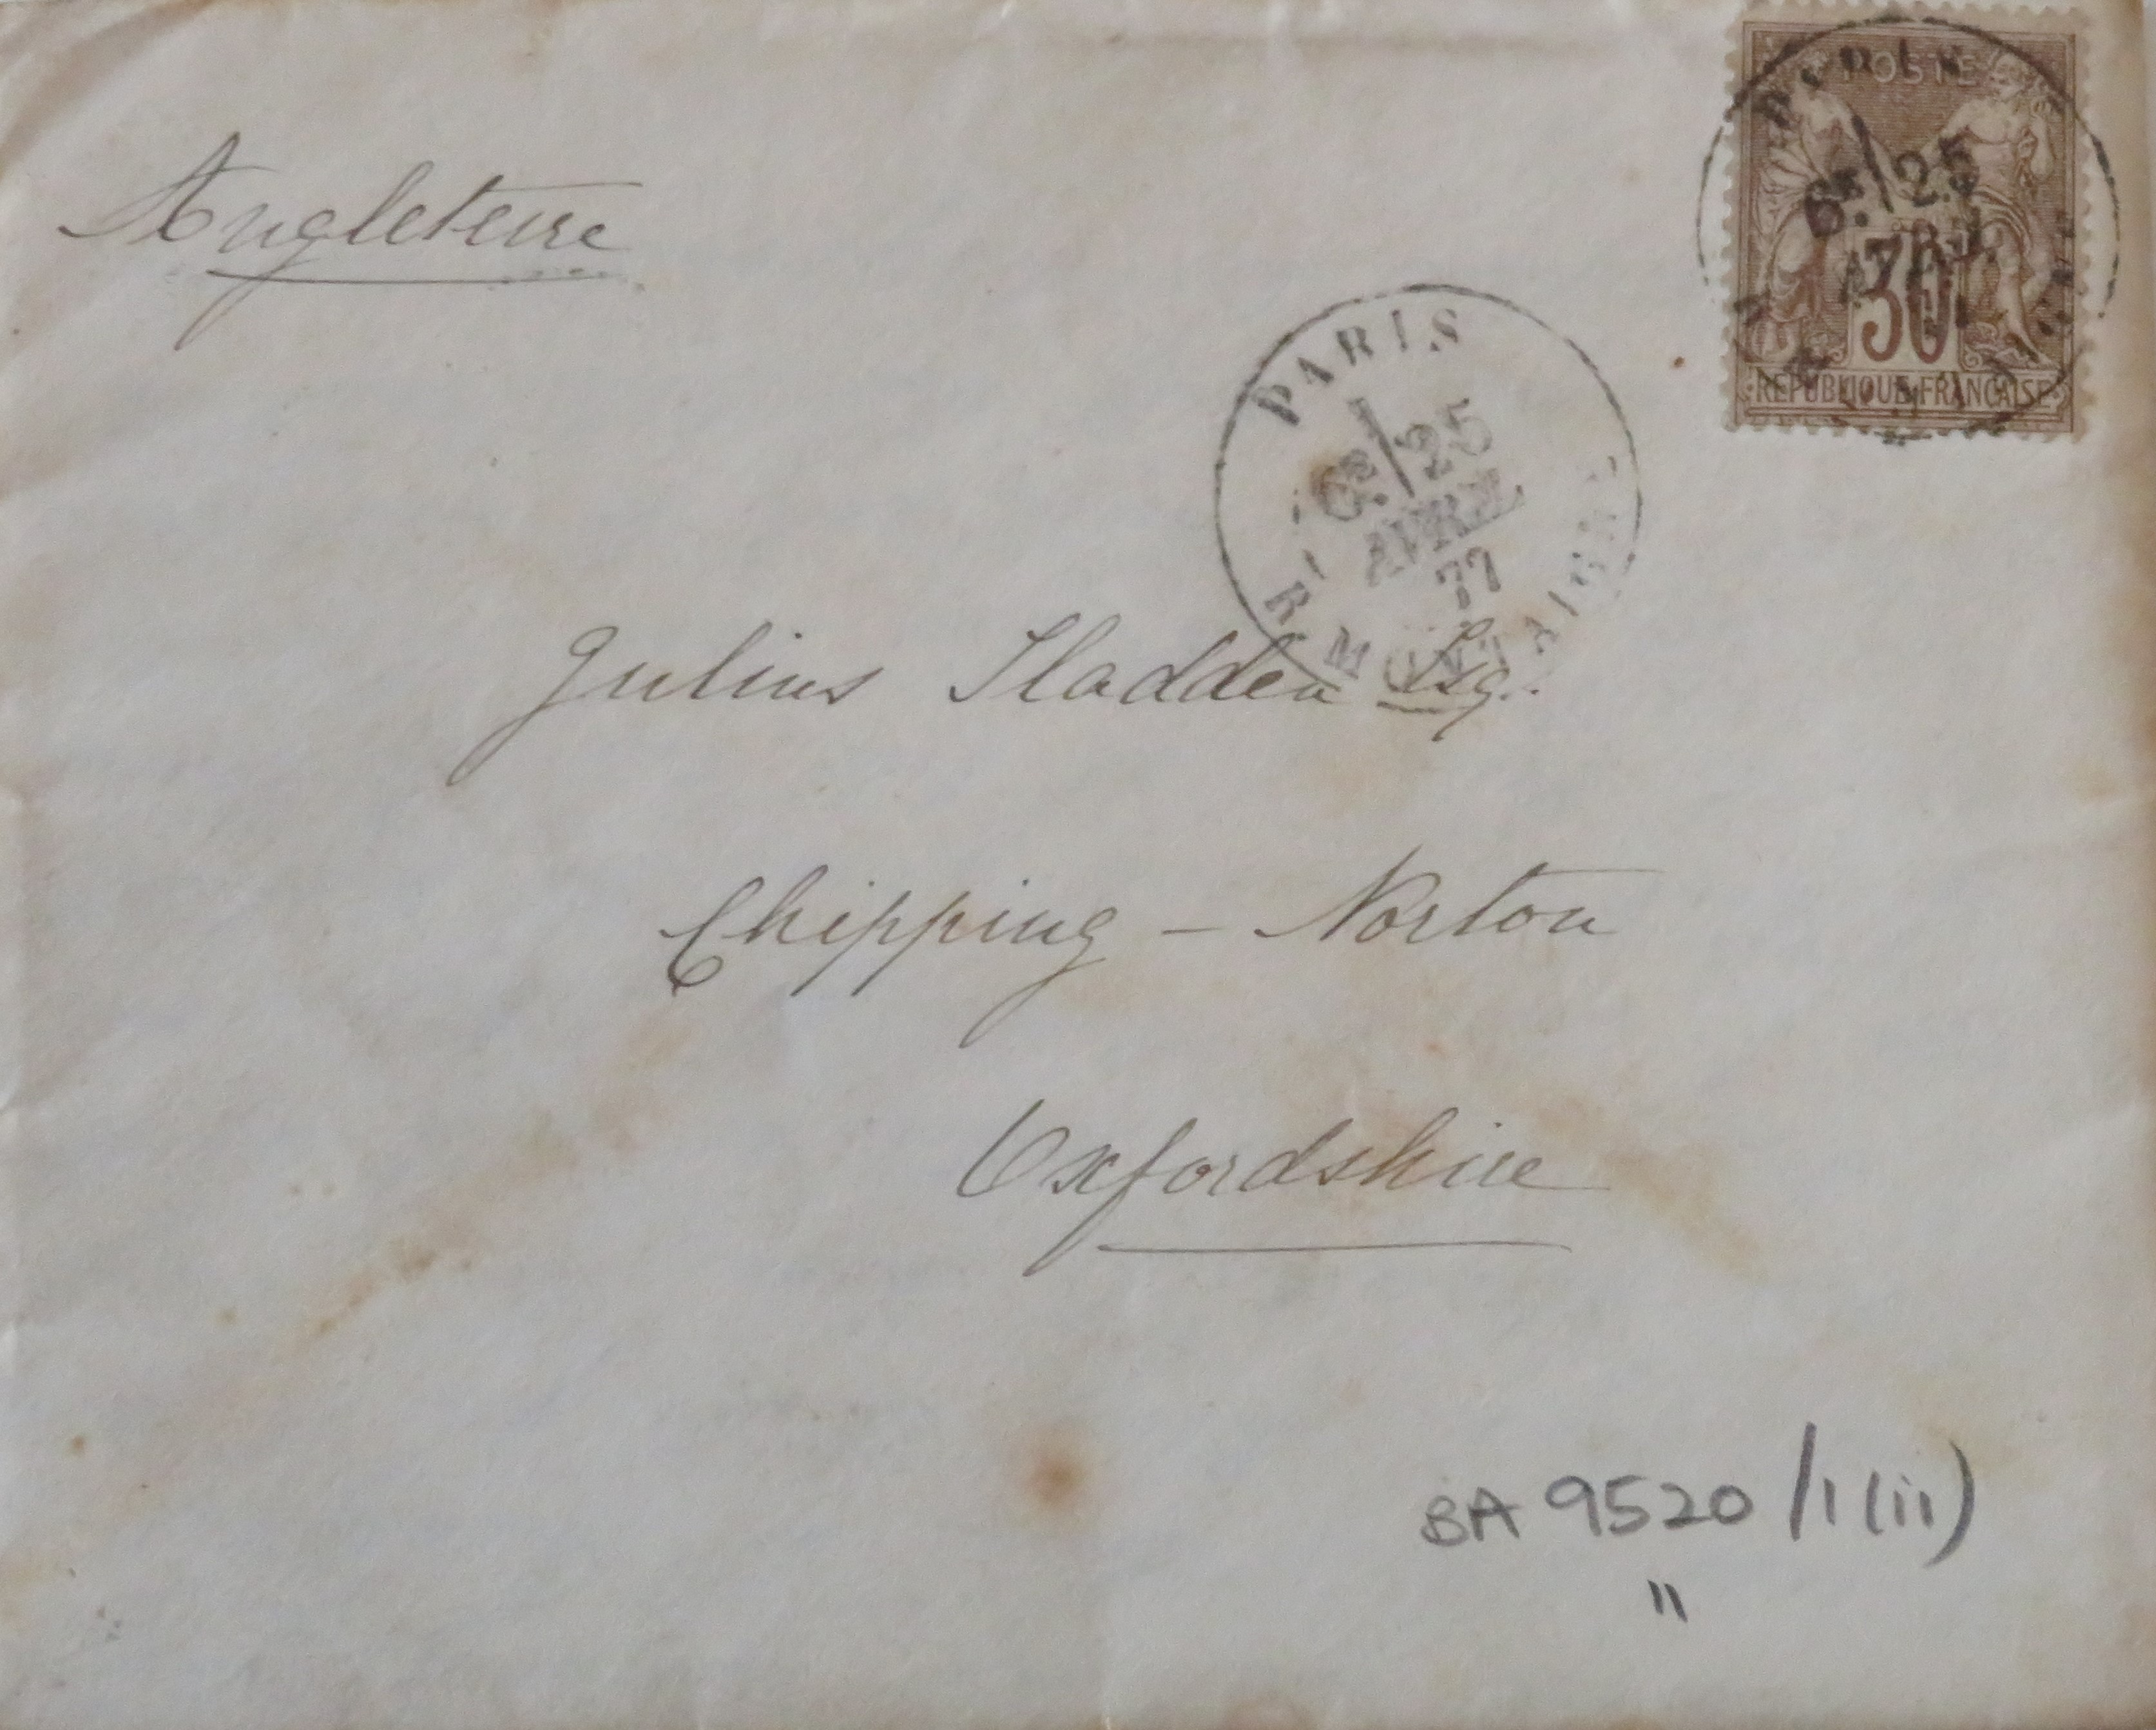 Angleterre
POSTE
PARIS
6E. / 25
AVRIL
30
REPUBLIQUE FRANCAISE
PARIS
6E. / 25
AVRIL
77
R. MONTAIGNE
Julius Sladden Esq.
Chipping - Norton
Oxfordshire
BA 9520 /1(ii)
"